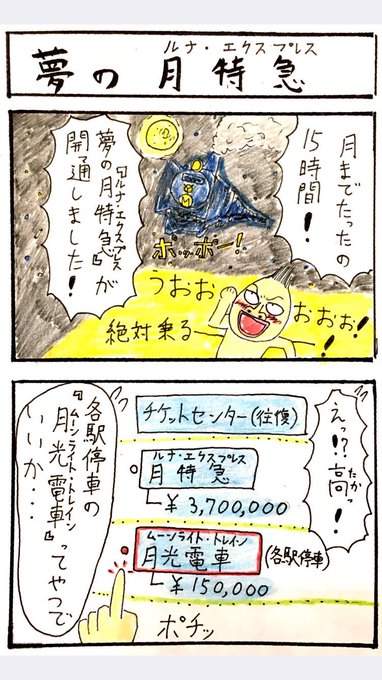 ルナ・エクスプレス
夢の月特急
月までたったの
15時間!
『ルナ・エクスプレス
夢の月特急』が
開通しました!
ホッポー!
うおお
おおお!!!
絶対乗る
えっ!?高っ!
たか
チケットセンター(往復)
ルナ・エクスプレス
月特急
¥3,700,000
ムーンライト・トレイン
月光電車
(各駅停車)
¥150,000
各駅停車の
ムーンライト・トレイン
『月光電車』ってやつで
いいか・・・
ポチッ